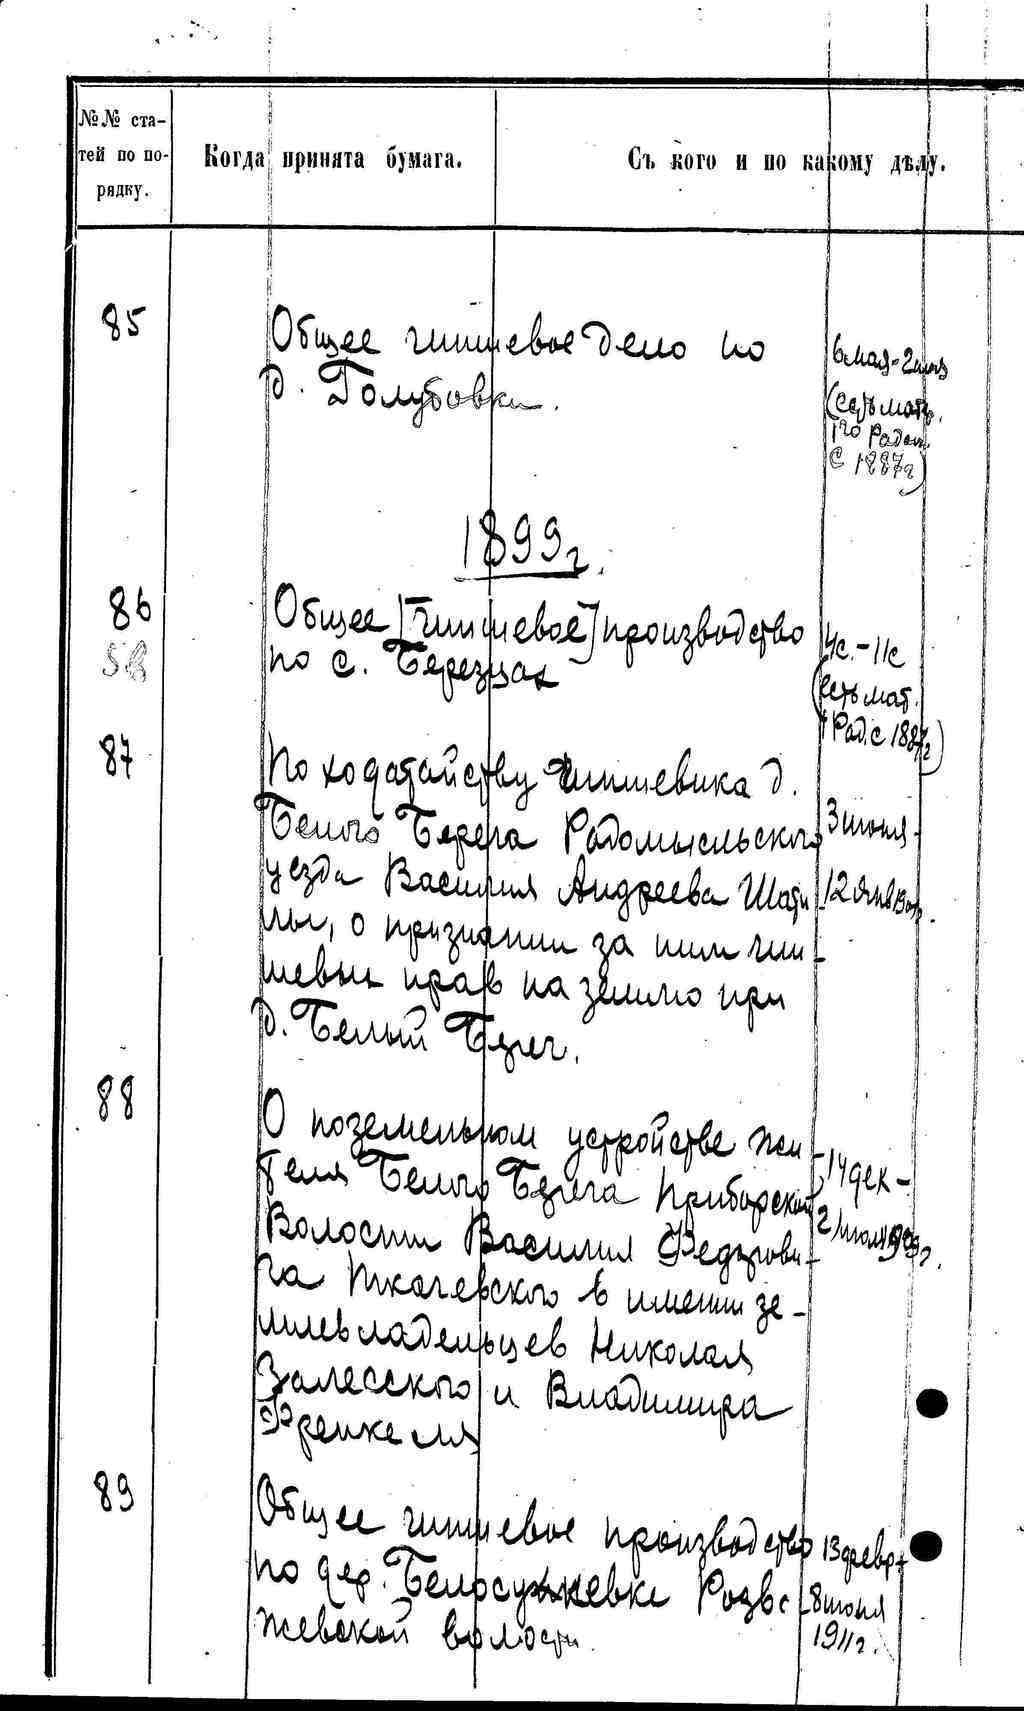 №№ ста-
тей по по-
рядку.
Когда принята бумага.
Съ кого и по какому дѣлу.
85
Общее чиншевое дело по
д. Голубовки.
6 мая - 2 июля
(есть мат.
1го Радом.
с 1887г)
1899г.
86
58
Общее [чиншевое] производство
по с. Березцах
4с. - 11с
(есть мат.
1 Рад. с 1887г)
87
По ходатайству чиншевика д.
Белого Берега Радомысльского
уезда Василия Андреева Шати
лы, о признании за ним чин-
шевых прав на землю при
д. Белый Берег.
3 июня -
12 янв 1901г.
88
О поземельном устройстве жи-
теля Белого Берега Приборской
Волости Василия Федорови-
ча Ткачевского в имении зе-
млевладельцев Николая
Залесского и Владимира
Френкеля
14 дек -
2 июля 1909г.
89
Общее чиншевое производство
по дер. Белосужевке Розва-
жевской волости.
13 февр -
- 8 июня
1911г.